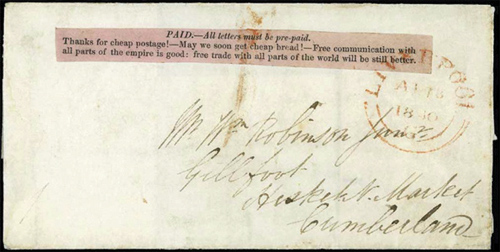 PAID.—All letters must be pre-paid.
Thanks for cheap postage!—May we soon get cheap bread!—Free communication with
all parts of the empire is good: free trade with all parts of the world will be still better.
LIVERPOOL
AP
18
Mr Wm Robinson Junr
Gillfoot
Hesket N. Market
Cumberland